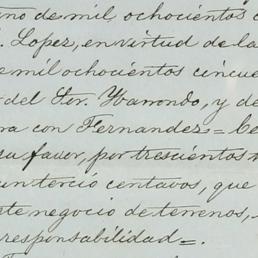 no de mil ochocientos c
. Lopez, en virtud de la
e mil ochocientos cincue
del Sor. Ybarrondo, y de
ra con Fernandez = Ce
su favor, por trescientos t
un tercio centavos, que
te negocio de terrenos,
responsabilidad =.